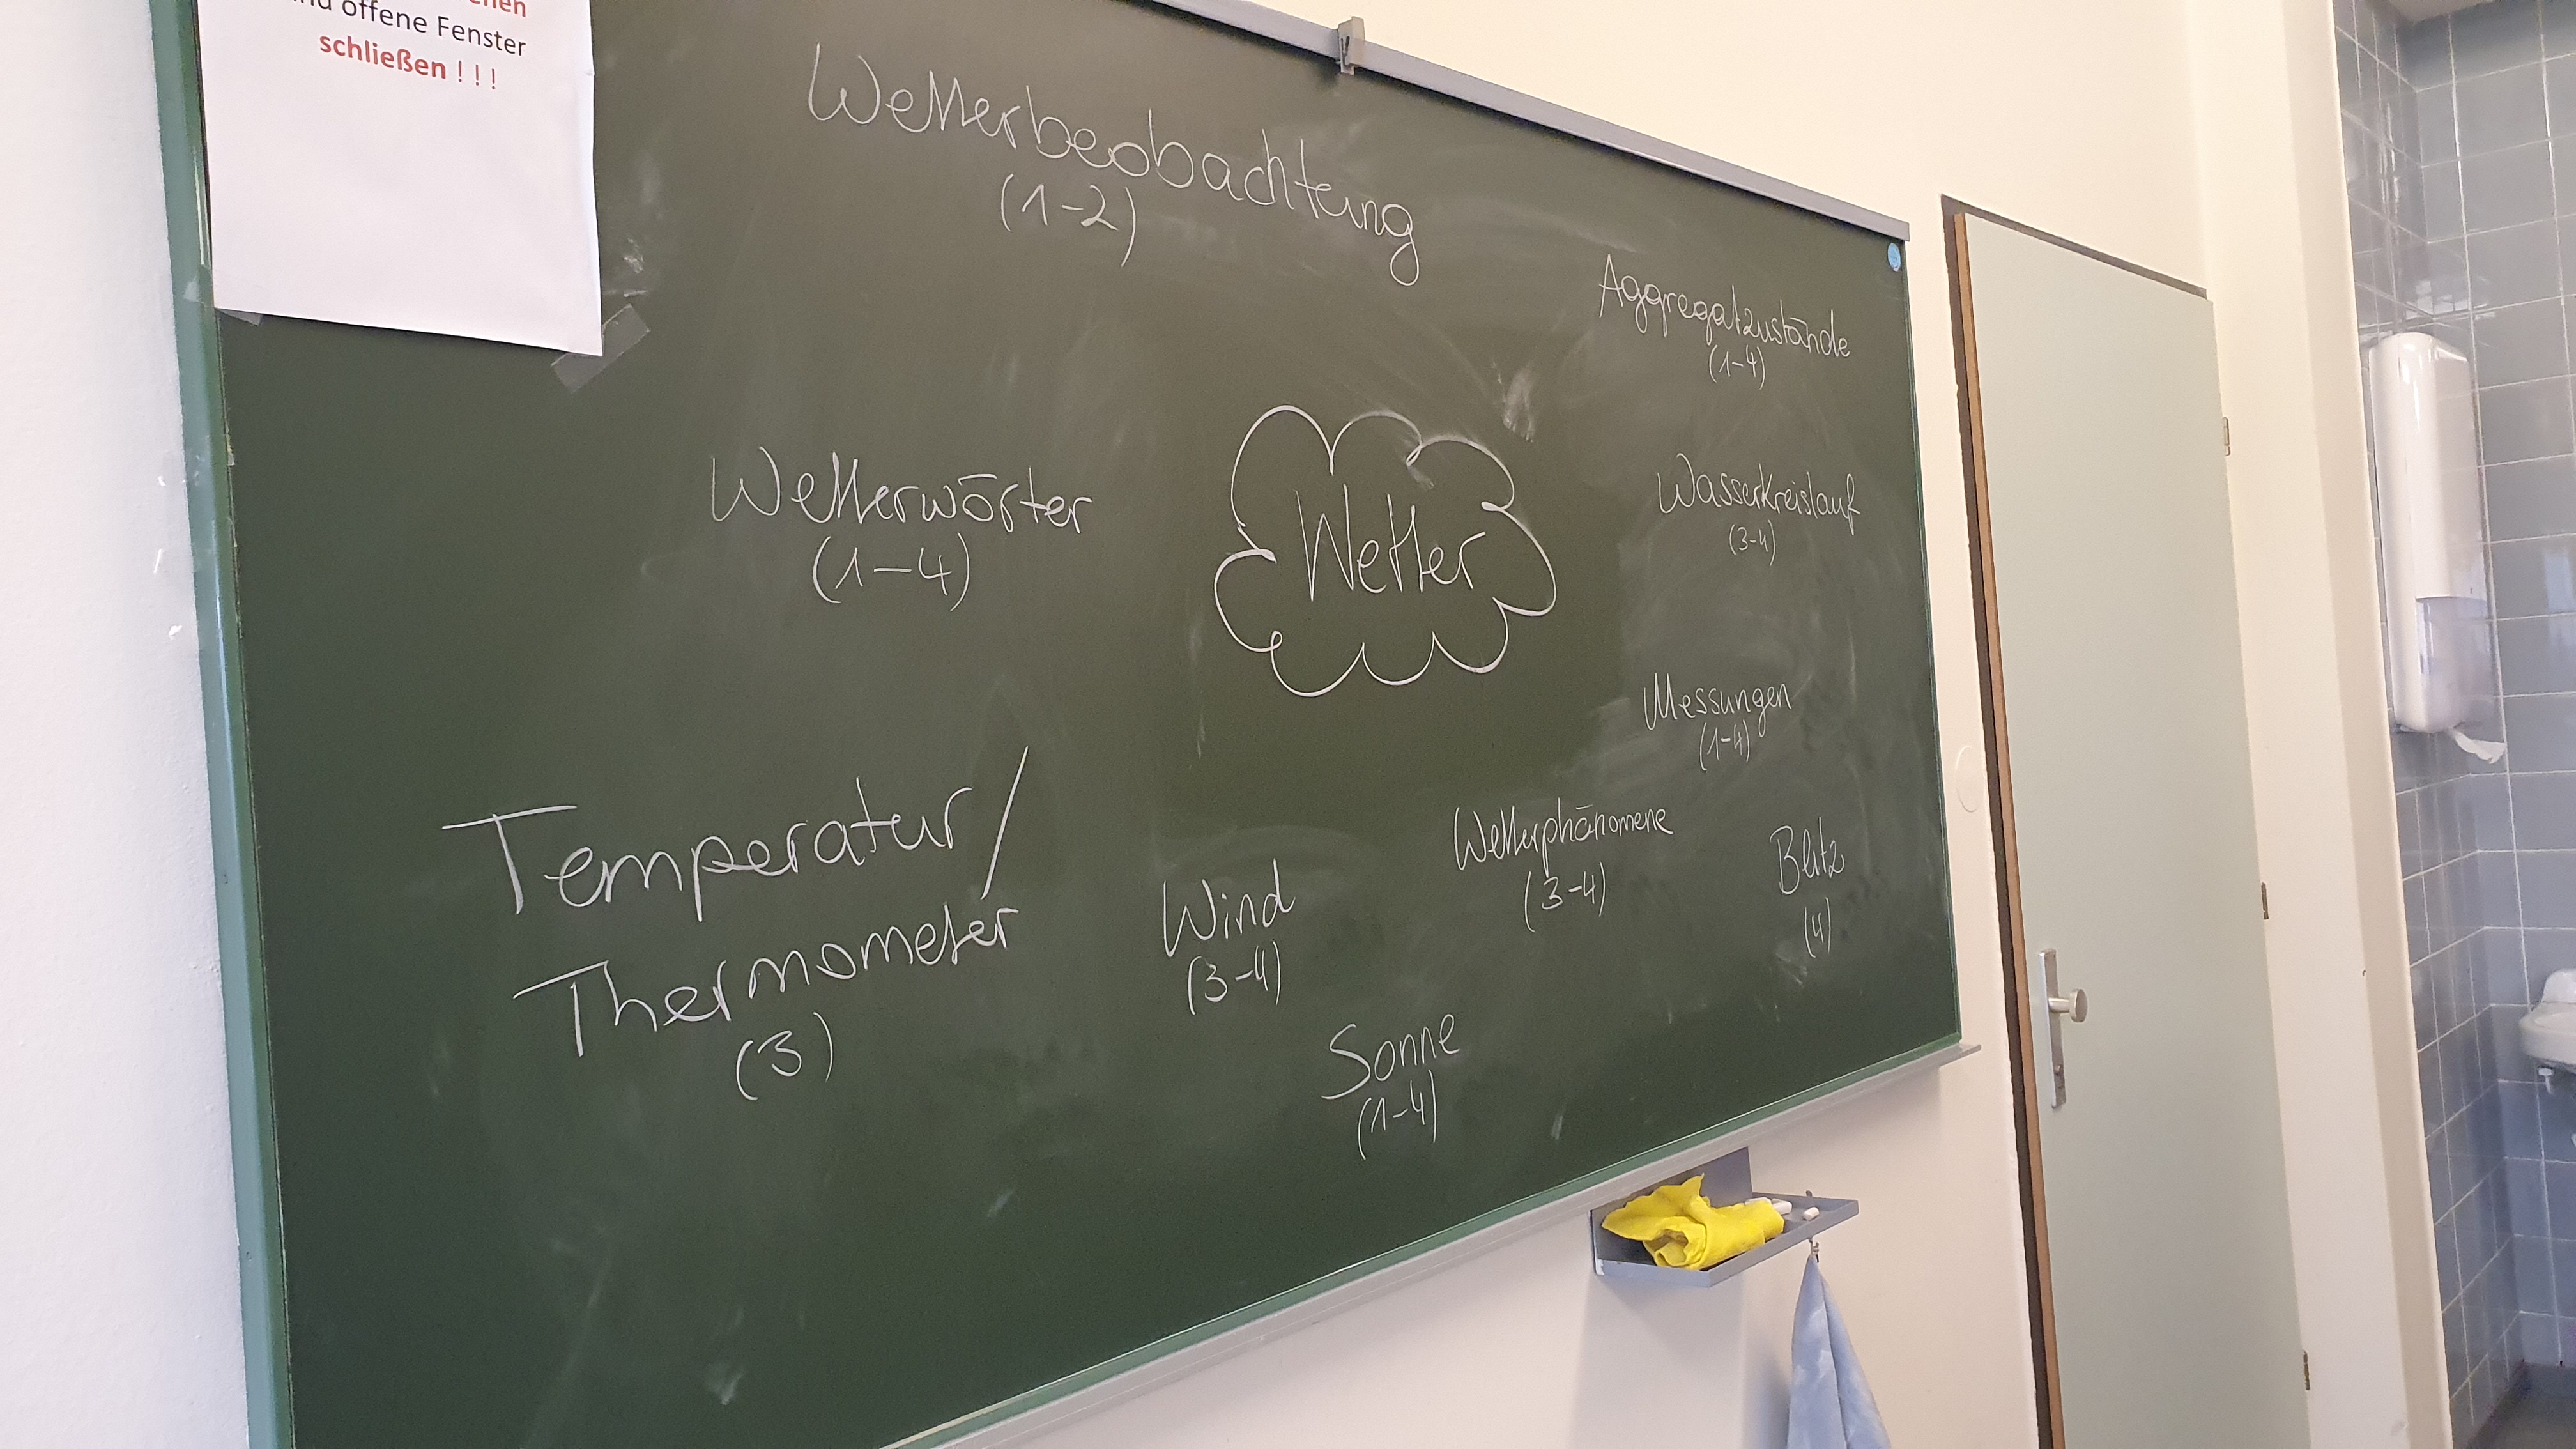 offene Fenster
schließen ! ! !
Wetterbeobachtung
(1-2)
Aggregatzustände
(1-4)
Wetterwörter
(1-4)
Wetter
Wasserkreislauf
(3-4)
Messungen
(1-4)
Temperatur/
Thermometer
(3)
Wind
(3-4)
Wetterphänomene
(3-4)
Blitz
(4)
Sonne
(1-4)